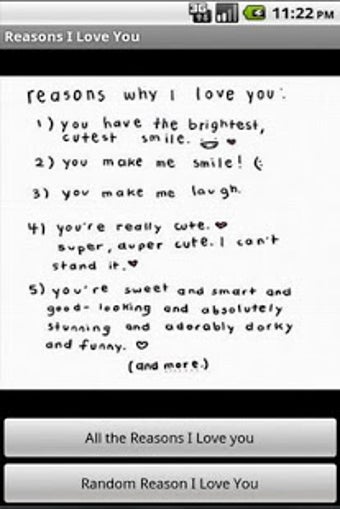 3G 11:22 PM
Reasons I Love You
reasons why I love you:
1) you have the brightest,
cutest smile.
2) you make me smile! (:
3) you make me laugh.
4) you're really cute.
super, duper cute. I can't
stand it.
5) you're sweet and smart and
good-looking and absolutely
stunning and adorably dorky
and funny.
(and more.)
All the Reasons I Love you
Random Reason I Love You